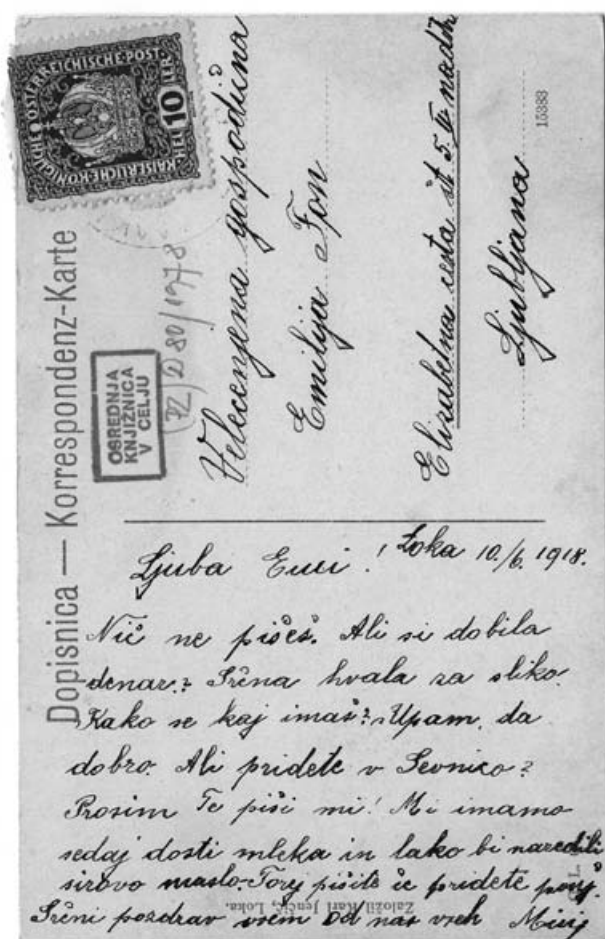 Dopisnica — Korrespondenz-Karte
KAISERLICHE KÖNIGLICHE ÖSTERREICHISCHE POST
10
HELLER
OSREDNJA
KNJIŽNICA
V CELJU
80/1978
Velecenjena gospodična
Emilija Fon
Elizabetna cesta št 5. II nadstr.
Ljubljana
15383
Loka 10./6. 1918.
Ljuba Emi!
Nič ne pišeš. Ali si dobila
denar? Srčna hvala za sliko.
Kako se kaj imaš? Upam, da
dobro. Ali pridete v Sevnico?
Prosim Te piši mi! Mi imamo
sedaj dosti mleka in lako bi naredili
sirovo maslo. Torej pišite če pridete
Srčni pozdrav vsem od nas vseh Mici
Založil Karl Jenčič, Loka.